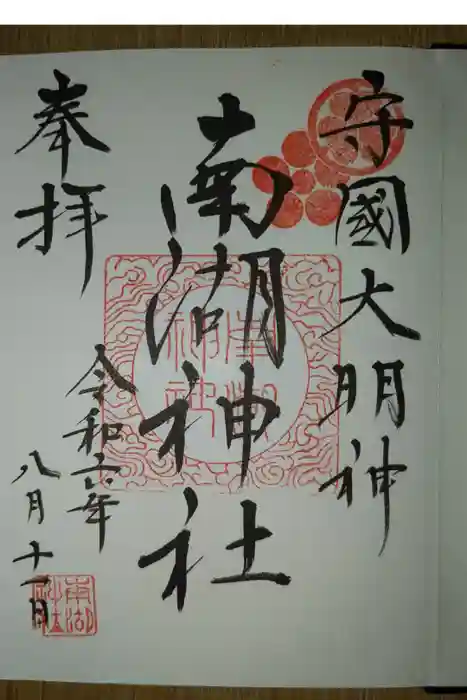 守國大明神
南湖神社
奉拝
令和六年
八月十一日
南湖
神社
南湖
神社